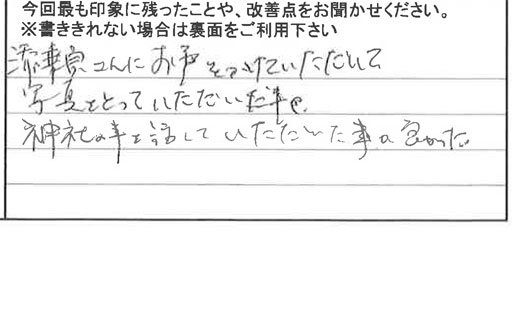 今回最も印象に残ったことや、改善点をお聞かせください。
※書ききれない場合は裏面をご利用下さい
添乗員さんにお声をかけていただいて
写真をとっていただいた事や、
神社の事を話していただいた事が良かった。